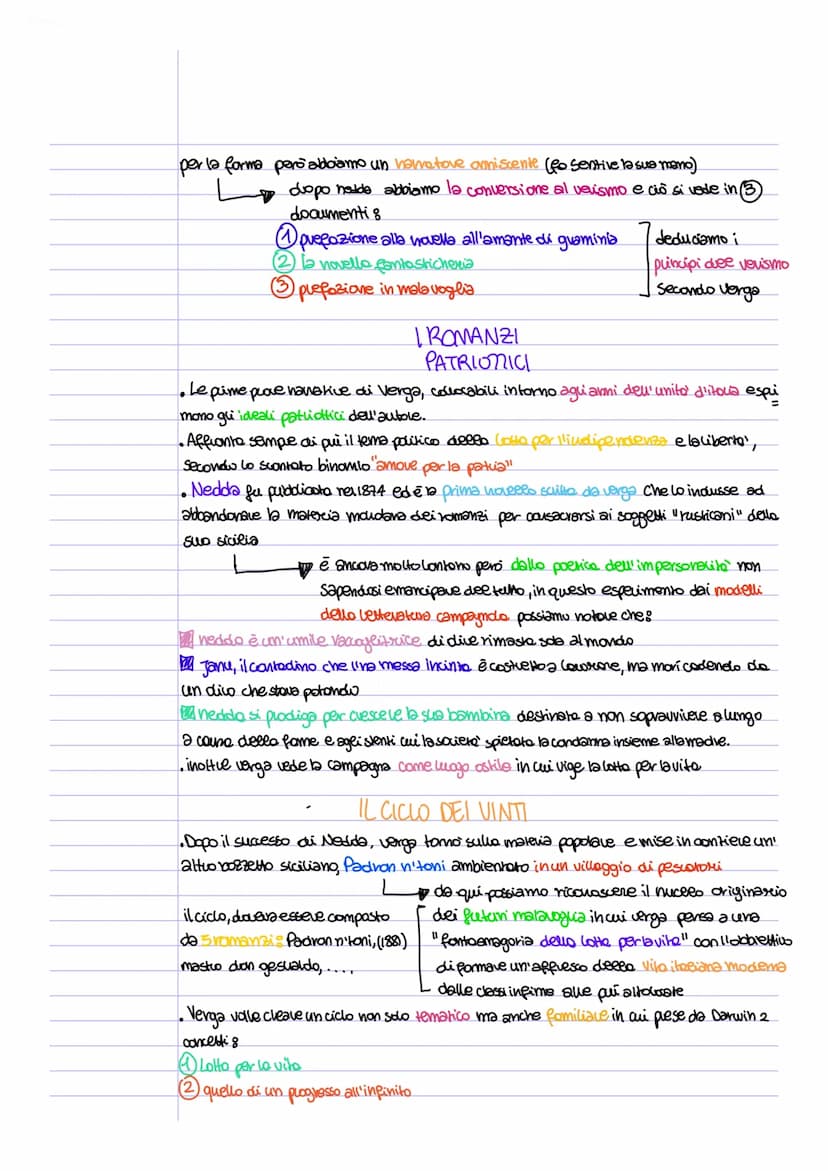 per la forma però abbiamo un narratore onniscente (fa sentire la sua mano)
dopo nedda abbiamo la conversione al verismo e ciò si vede in 3
documenti:
1 prefazione alla novella all'amante di graminia
2 la novella fantasticheria
3 prefazione in malavoglia
deduciamo i
principi del verismo
secondo Verga
I ROMANZI
PATRIOTTICI
• Le prime prove narrative di Verga, collocabili intorno agli anni dell'unità d'italia espri
mono gli ideali patriottici dell'autore.
• Affronta sempre di più il tema politico della lotta per l'indipendenza e la libertà,
secondo lo scontato binomio "amore per la patria"
• Nedda fu pubblicata nel 1874 ed è la prima novella scritta da verga che lo indusse ad
abbandonare la materia mondana dei romanzi per consacrarsi ai soggetti "rusticani" della
sua sicilia
è ancora molto lontano però dalla poetica dell'impersonalità non
sapendosi emancipare del tutto, in questo esperimento dai modelli
della letteratura campagnola possiamo notare che:
nedda è un'umile raccoglitrice di olive rimasta sola al mondo
Janu, il contadino che l'ha messa incinta è costretto a lavorare, ma morì cadendo da
un olivo che stava potando
nedda si prodiga per crescere la sua bambina destinata a non sopravvivere a lungo
a causa della fame e agli stenti cui la società spietata la condanna insieme alla madre.
• inoltre verga vede la campagna come luogo ostile in cui vige la lotta per la vita
IL CICLO DEI VINTI
• Dopo il successo di Nedda, verga tornò sulla materia popolare e mise in cantiere un'
altro bozzetto siciliano, Padron n'toni ambientato in un villaggio di pescatori
da qui possiamo riconoscere il nucleo originario
dei futuri malavoglia in cui verga pensa a una
"fantasmagoria della lotta per la vita" con l'obbiettivo
di formare un'affresco della vita italiana moderna
dalle classi infime alle più altolocate
il ciclo, doveva essere composto
da 5 romanzi: Padron n'toni, (1881)
mastro don gesualdo, ....,
• Verga volle creare un ciclo non solo tematico ma anche familiare in cui prese da Darwin 2
concetti:
1 Lotta per la vita
2 quello di un progresso all'infinito